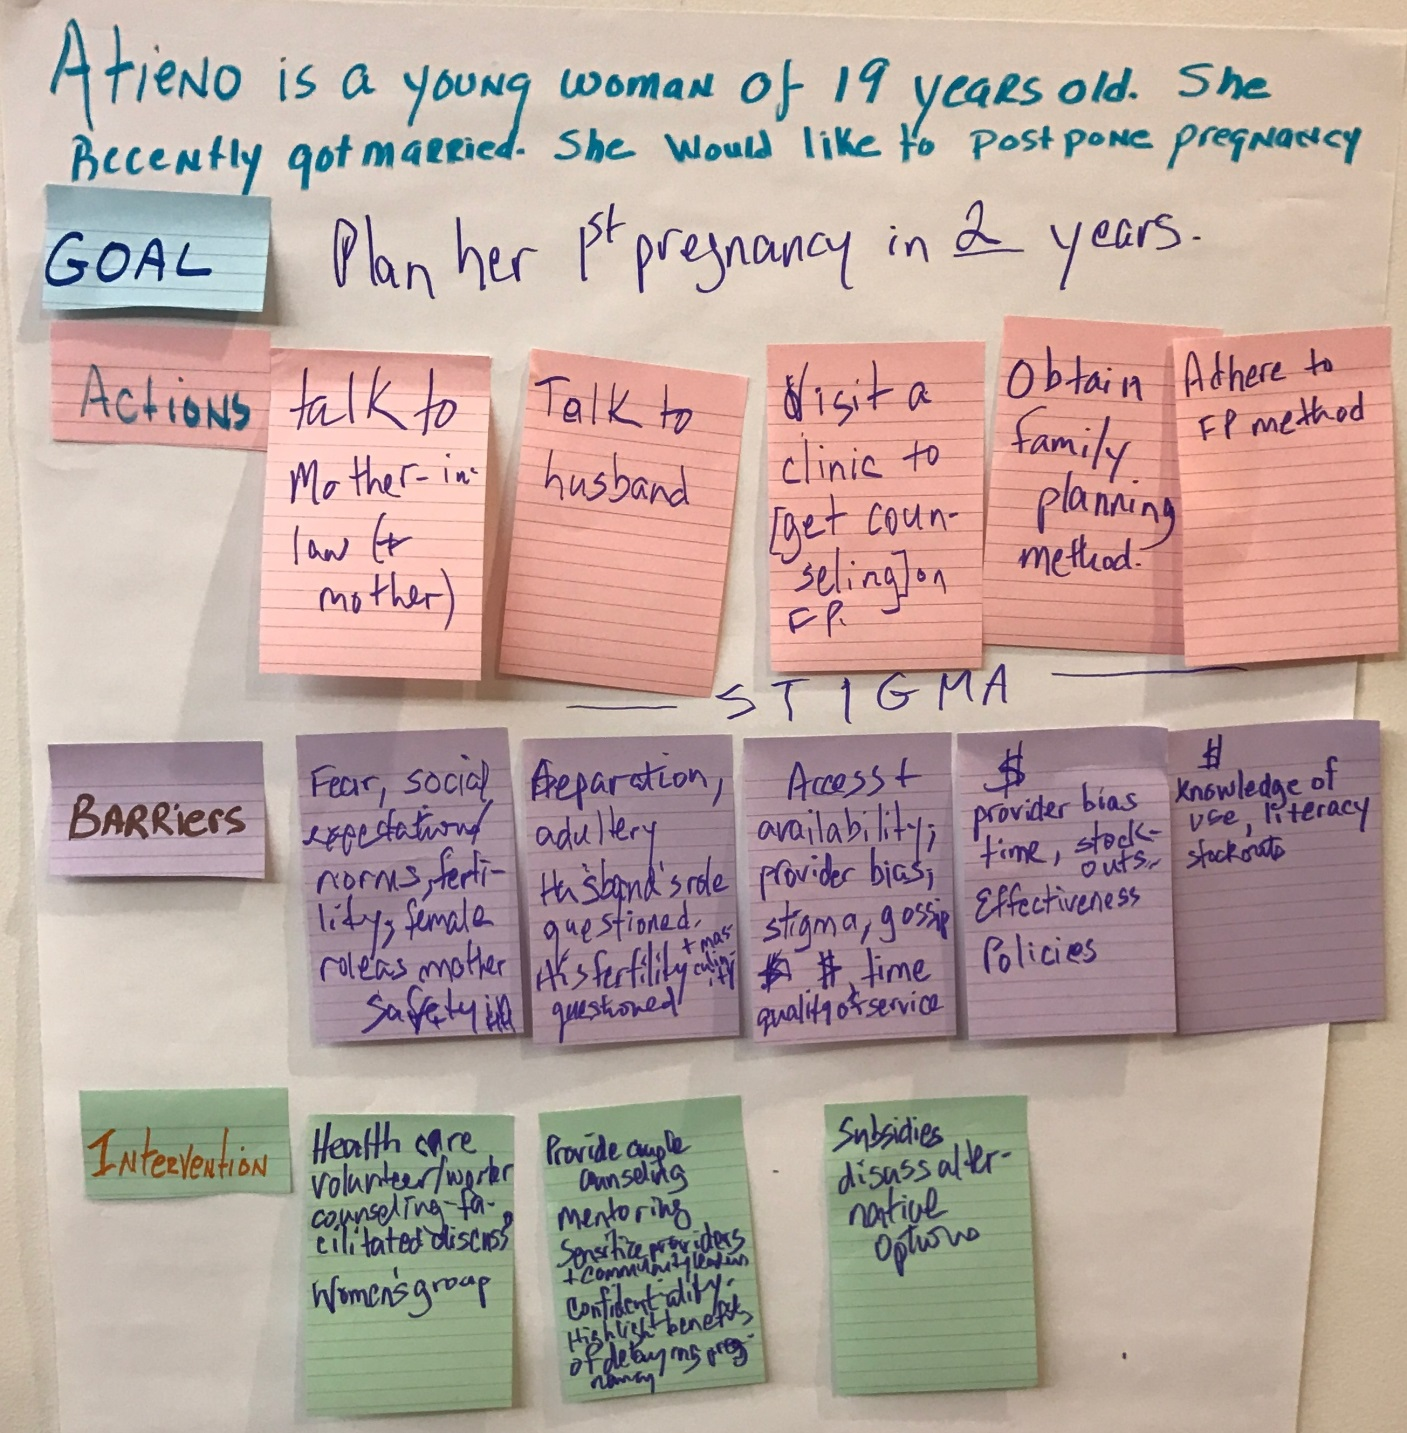 Atieno is a young woman of 19 years old. She
Recently got married. She would like to postpone pregnancy
GOAL
Plan her 1st pregnancy in 2 years.
Actions
talk to
Mother-in-
law (+
mother)
Talk to
husband
Visit a
clinic to
[get coun-
seling] on
FP.
Obtain
family
planning
method.
Adhere to
FP method
STIGMA
Barriers
Fear, social
expectations/
norms, ferti-
lity, female
role as mother
Safety
Separation,
adultery
Husband's role
questioned.
His fertility + mas-
culinity
questioned
Access +
availability;
provider bias;
stigma, gossip
$, time
quality of service
$
provider bias
time, stock-
outs,
Effectiveness
Policies
$
knowledge of
use, literacy
stockouts
Intervention
Health care
volunteer/worker
counseling-fa-
cilitated discuss
Women's group
Provide couple
counseling
mentoring
Sensitize providers
+ community leaders
Confidentiality.
Highlight benefits
of delaying preg-
nancy
Subsidies
disuss alter-
native
options